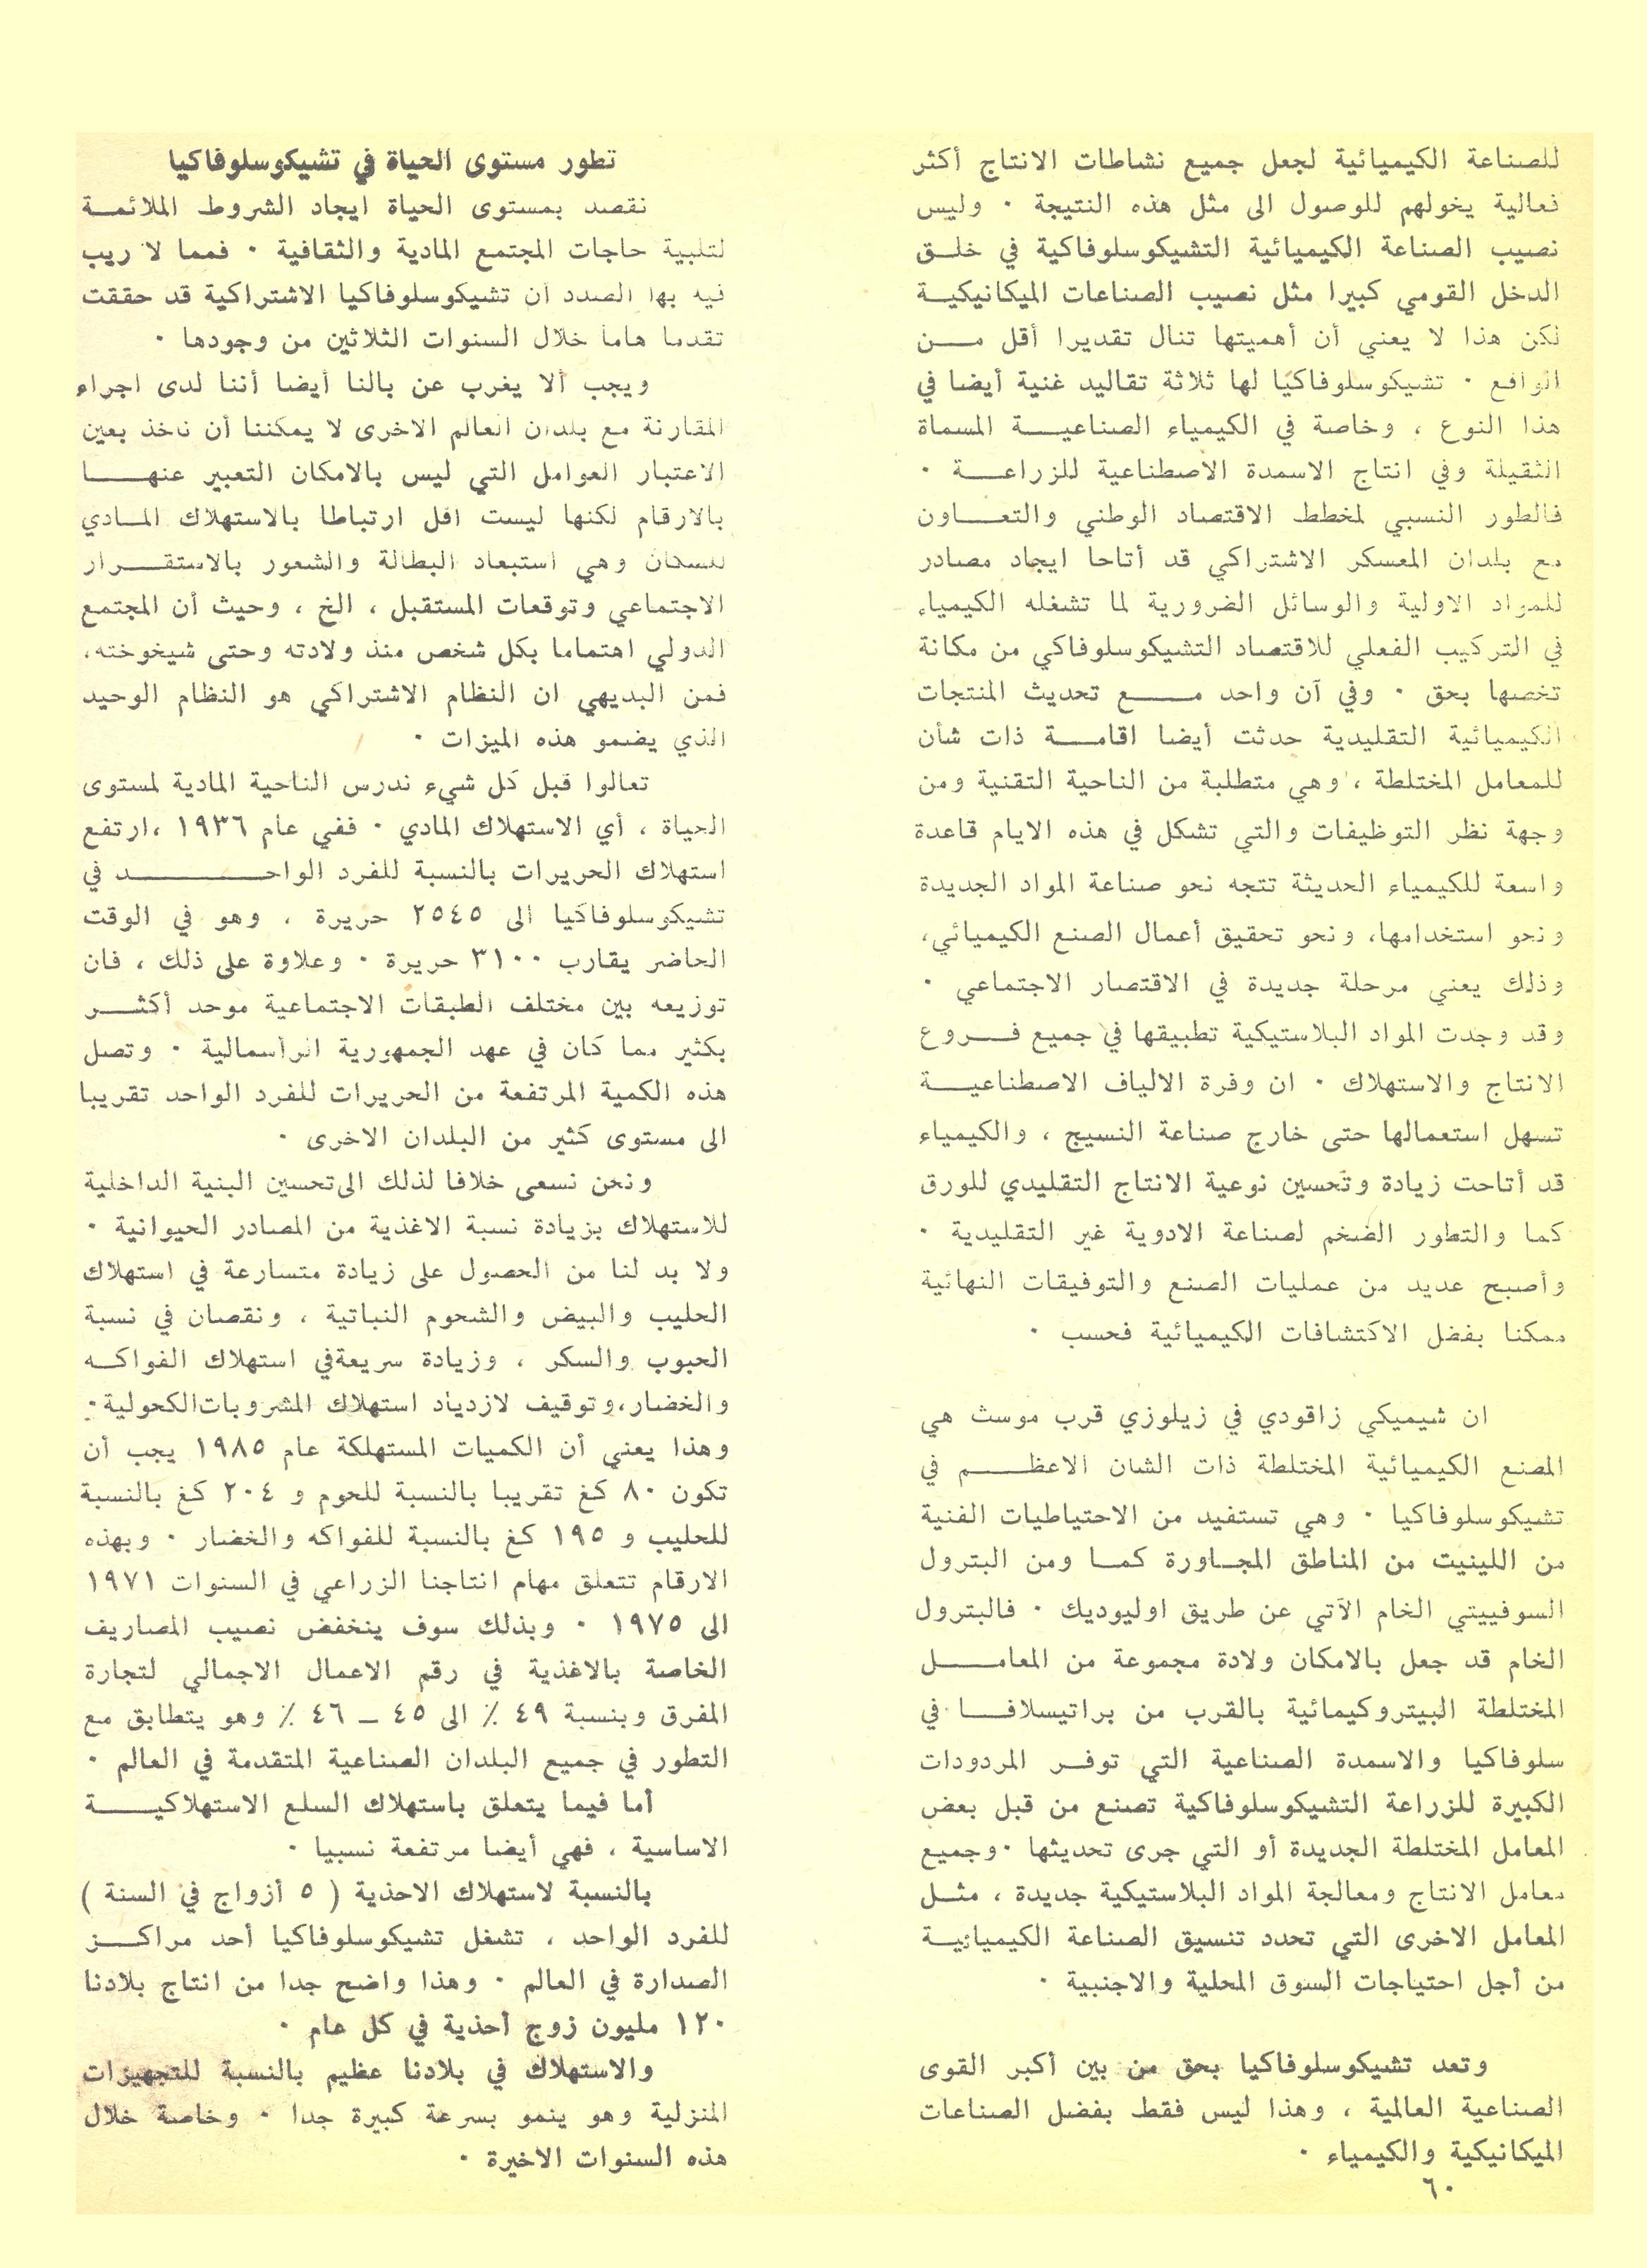 للصناعة الكيميائية لجعل جميع نشاطات الانتاج أكثر
فعالية يخولهم للوصول الى مثل هذه النتيجة ٠ وليس
نصيب الصناعة الكيميائية التشيكوسلوفاكية في خلـق
الدخل القومي كبيرا مثل نصيب الصناعات الميكانيكية
لكن هذا لا يعني أن أهميتها تنال تقديرا أقل مـن
الواقع ٠ تشيكوسلوفاكيا لها ثلاثة تقاليد غنية أيضا في
هذا النوع ، وخاصة في الكيمياء الصناعيـة المسماة
الثقيلة وفي انتاج الاسمدة الاصطناعية للزراعـة ٠
فالطور النسبي لمخطط الاقتصاد الوطني والتعـاون
مع بلدان المعسكر الاشتراكي قد أتاحا ايجاد مصادر
للمواد الاولية والوسائل الضرورية لما تشغله الكيمياء
في التركيب الفعلي للاقتصاد التشيكوسلوفاكي من مكانة
تخصها بحق ٠ وفي آن واحد مـع تحديث المنتجات
الكيميائية التقليدية حدثت أيضا اقامـة ذات شأن
للمعامل المختلطة ، وهي متطلبة من الناحية التقنية ومن
وجهة نظر التوظيفات والتي تشكل في هذه الايام قاعدة
واسعة للكيمياء الحديثة تتجه نحو صناعة المواد الجديدة
ونحو استخدامها، ونحو تحقيق أعمال الصنع الكيميائي،
وذلك يعني مرحلة جديدة في الاقتصار الاجتماعي ٠
وقد وجدت المواد البلاستيكية تطبيقها في جميع فـروع
الانتاج والاستهلاك ٠ ان وفرة الالياف الاصطناعيـة
تسهل استعمالها حتى خارج صناعة النسيج ، والكيمياء
قد أتاحت زيادة وتحسين نوعية الانتاج التقليدي للورق
كما والتطور الضخم لصناعة الادوية غير التقليدية ٠
وأصبح عديد من عمليات الصنع والتوفيقات النهائية
ممكنا بفضل الاكتشافات الكيميائية فحسب ٠
ان شيميكي زاقودي في زيلوزي قرب موست هي
المصنع الكيميائية المختلطة ذات الشان الاعظـم في
تشيكوسلوفاكيا ٠ وهي تستفيد من الاحتياطيات الفنية
من اللينيت من المناطق المجـاورة كمـا ومن البترول
السوفييتي الخام الآتي عن طريق اوليوديك ٠ فالبترول
الخام قد جعل بالامكان ولادة مجموعة من المعامـل
المختلطة البيتروكيمائية بالقرب من براتيسلافـا في
سلوفاكيا والاسمدة الصناعية التي توفـر المردودات
الكبيرة للزراعة التشيكوسلوفاكية تصنع من قبل بعض
المعامل المختلطة الجديدة أو التي جرى تحديثها ٠ وجميع
معامل الانتاج ومعالجة المواد البلاستيكية جديدة ، مثـل
المعامل الاخرى التي تحدد تنسيق الصناعة الكيميائيـة
من أجل احتياجات السوق المحلية والاجنبية ٠
وتعد تشيكوسلوفاكيا بحق من بين أكبر القوى
الصناعية العالمية ، وهذا ليس فقط بفضل الصناعات
الميكانيكية والكيمياء ٠
٦٠
تطور مستوى الحياة في تشيكوسلوفاكيا
نقصد بمستوى الحياة ايجاد الشروط الملائمـة
لتلبية حاجات المجتمع المادية والثقافية ٠ فمما لا ريب
فيه بها الصدد ان تشيكوسلوفاكيا الاشتراكية قد حققت
تقدما هاما خلال السنوات الثلاثين من وجودها ٠
ويجب ألا يغرب عن بالنا أيضا أننا لدى اجراء
المقارنة مع بلدان العالم الاخرى لا يمكننا أن ناخذ بعين
الاعتبار العوامل التي ليس بالامكان التعبير عنهـا
بالارقام لكنها ليست اقل ارتباطا بالاستهلاك المـادي
للسكان وهي استبعاد البطالة والشعور بالاستقـرار
الاجتماعي وتوقعات المستقبل ، الخ ، وحيث أن المجتمع
الدولي اهتماما بكل شخص منذ ولادته وحتى شيخوخته،
فمن البديهي ان النظام الاشتراكي هو النظام الوحيد
الذي يضمو هذه الميزات ٠
تعالوا قبل كل شيء ندرس الناحية المادية لمستوى
الحياة ، أي الاستهلاك المادي ٠ ففي عام ١٩٣٦ ،ارتفع
استهلاك الحريرات بالنسبة للفرد الواحـد في
تشيكوسلوفاكيا الى ٢٥٤٥ حريرة ، وهو في الوقت
الحاضر يقارب ٣١٠٠ حريرة ٠ وعلاوة على ذلك ، فان
توزيعه بين مختلف الطبقات الاجتماعية موحد أكثـر
بكثير مما كان في عهد الجمهورية الرأسمالية ٠ وتصل
هذه الكمية المرتفعة من الحريرات للفرد الواحد تقريبا
الى مستوى كثير من البلدان الاخرى ٠
ونحن نسعى خلافا لذلك الى تحسين البنية الداخلية
للاستهلاك بزيادة نسبة الاغذية من المصادر الحيوانية ٠
ولا بد لنا من الحصول على زيادة متسارعة في استهلاك
الحليب والبيض والشحوم النباتية ، ونقصان في نسبة
الحبوب والسكر ، وزيادة سريعة في استهلاك الفواكـه
والخضار، وتوقيف لازدياد استهلاك المشروبات الكحولية ٠
وهذا يعني أن الكميات المستهلكة عام ١٩٨٥ يجب أن
تكون ٨٠ كغ تقريبا بالنسبة للحوم و ٢٠٤ كغ بالنسبة
للحليب و ١٩٥ كغ بالنسبة للفواكه والخضار ٠ وبهذه
الارقام تتعلق مهام انتاجنا الزراعي في السنوات ١٩٧١
الى ١٩٧٥ ٠ وبذلك سوف ينخفض نصيب المصاريف
الخاصة بالاغذية في رقم الاعمال الاجمالي لتجارة
المفرق وبنسبة ٤٩ ٪ الى ٤٥ ــ ٤٦ ٪ وهو يتطابق مع
التطور في جميع البلدان الصناعية المتقدمة في العالم ٠
أما فيما يتعلق باستهلاك السلع الاستهلاكيـة
الاساسية ، فهي أيضا مرتفعة نسبيا ٠
بالنسبة لاستهلاك الاحذية ( ٥ أزواج في السنة )
للفرد الواحد ، تشغل تشيكوسلوفاكيا أحد مراكـز
الصدارة في العالم ٠ وهذا واضح جدا من انتاج بلادنا
١٢٠ مليون زوج أحذية في كل عام ٠
والاستهلاك في بلادنا عظيم بالنسبة للتجهيزات
المنزلية وهو ينمو بسرعة كبيرة جدا ٠ وخاصة خلال
هذه السنوات الاخيرة ٠